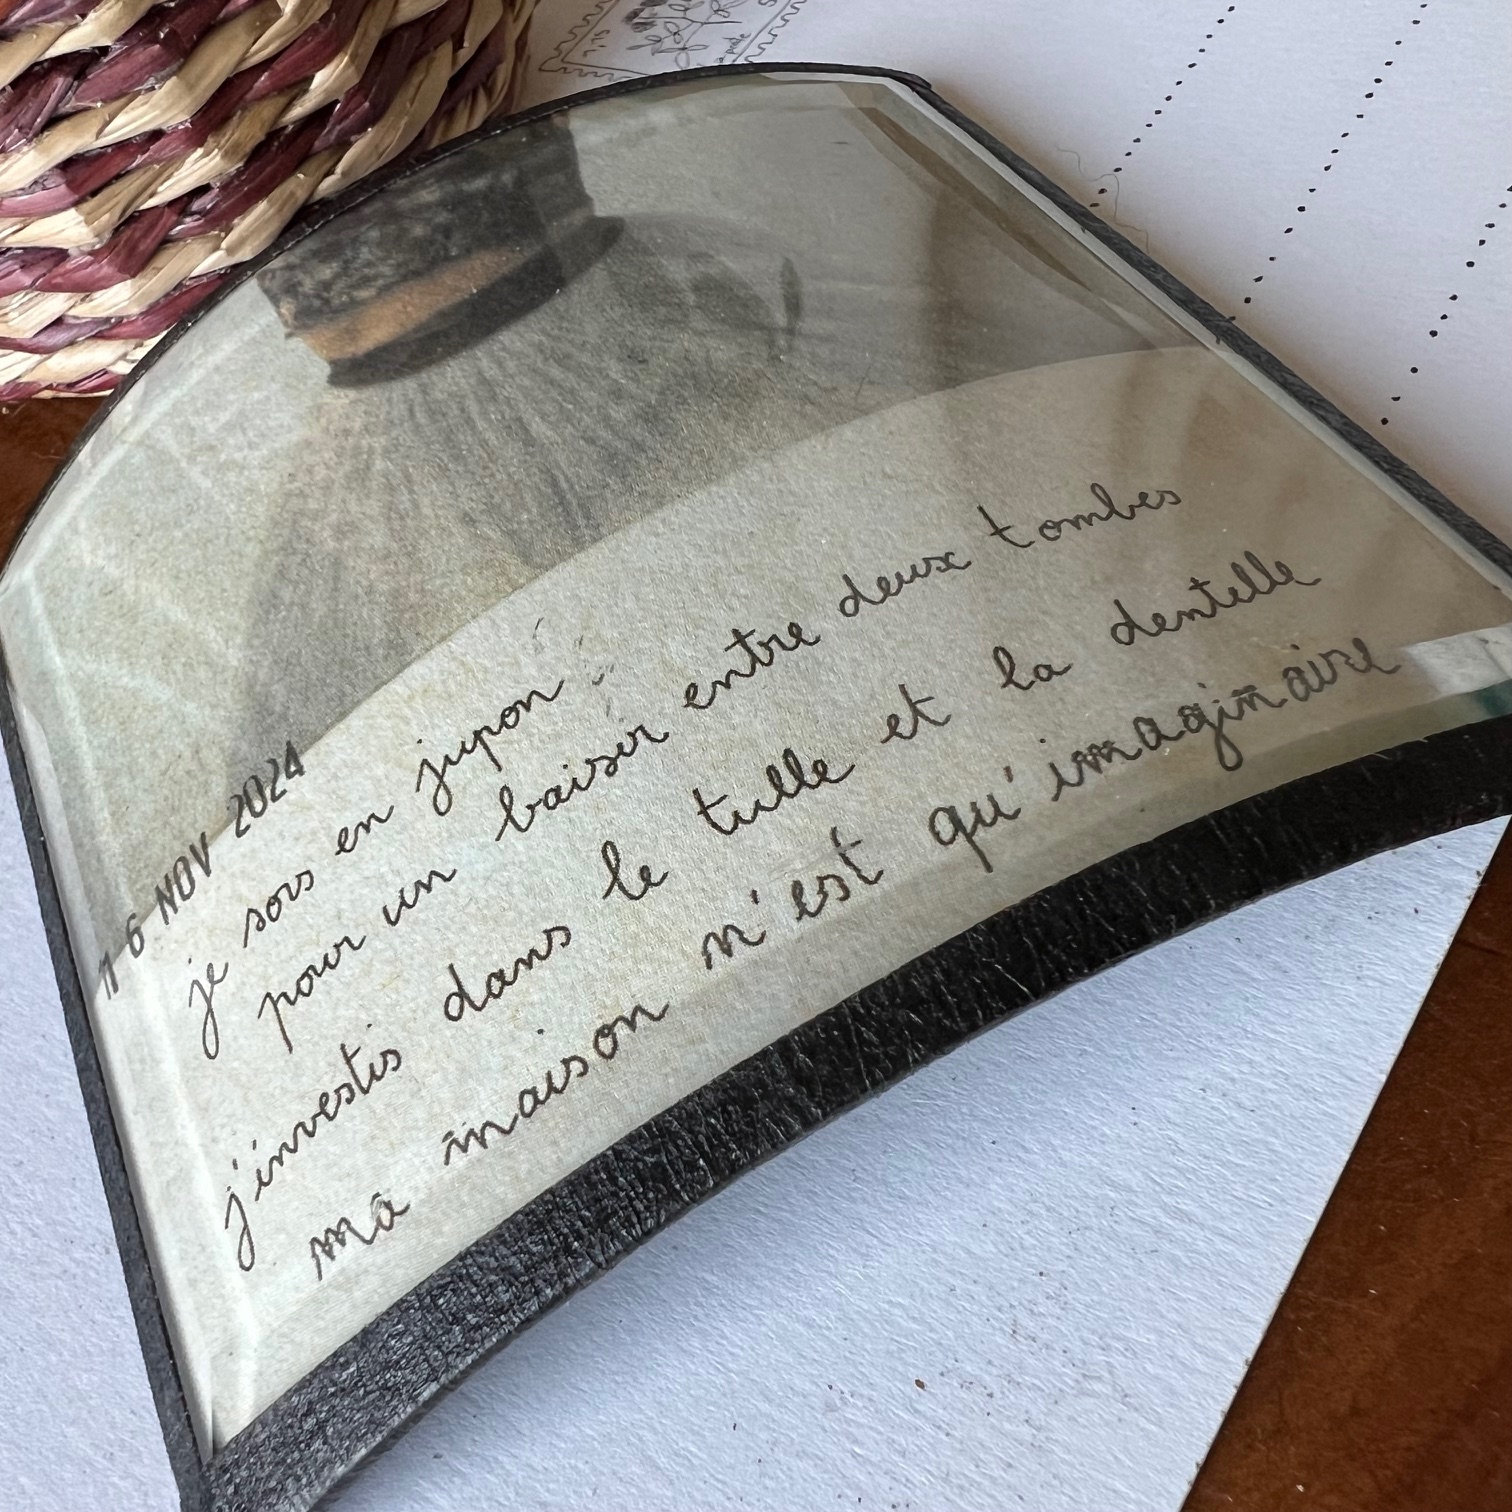 16 NOV 2024
je sors en jupon
pour un baiser entre deux tombes
j'investis dans le tulle et la dentelle
ma maison n'est qu'imaginaire